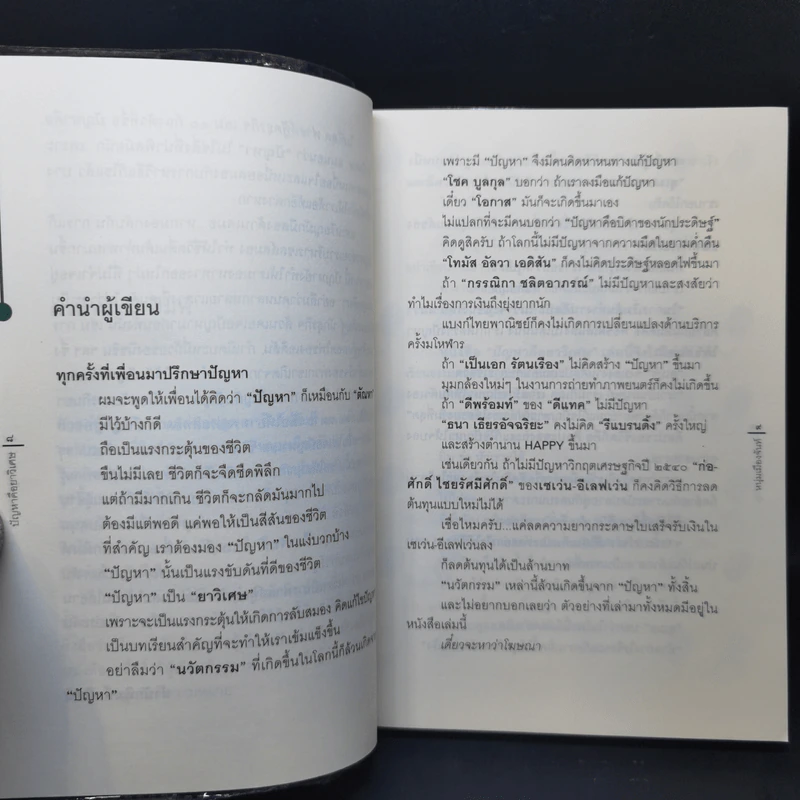 คำนำผู้เขียน
ทุกครั้งที่เพื่อนมาปรึกษาปัญหา
ผมจะพูดให้เพื่อนได้คิดว่า “ปัญหา” ก็เหมือนกับ “ตัณหา”
มีไว้บ้างก็ดี
ถือเป็นแรงกระตุ้นของชีวิต
ขืนไม่มีเลย ชีวิตก็จะจืดชืดพิลึก
แต่ถ้ามีมากเกิน ชีวิตก็จะกลัดมันมากไป
ต้องมีแต่พอดี แค่พอให้เป็นสีสันของชีวิต
ที่สำคัญ เราต้องมอง “ปัญหา” ในแง่บวกบ้าง
“ปัญหา” นั้นเป็นแรงขับดันที่ดีของชีวิต
“ปัญหา” เป็น “ยาวิเศษ”
เพราะจะเป็นแรงกระตุ้นให้เกิดการลับสมอง คิดแก้ไขปัญหา
เป็นบทเรียนสำคัญที่จะทำให้เราเข้มแข็งขึ้น
อย่าลืมว่า “นวัตกรรม” ที่เกิดขึ้นในโลกนี้ก็ล้วนเกิดจาก
“ปัญหา”
ปัญหาคือยาวิเศษ
เพราะมี “ปัญหา” จึงมีคนคิดหาหนทางแก้ปัญหา
“โชค บูลกุล” บอกว่า ถ้าเราลงมือแก้ปัญหา
เดี๋ยว “โอกาส” มันก็จะเกิดขึ้นมาเอง
ไม่แปลกที่จะมีคนบอกว่า “ปัญหาคือบิดาของนักประดิษฐ์”
คิดดูสิครับ ถ้าโลกนี้ไม่มีปัญหาจากความมืดในยามค่ำคืน
“โทมัส อัลวา เอดิสัน” ก็คงไม่คิดประดิษฐ์หลอดไฟขึ้นมา
ถ้า “กรรณิกา ชลิตอาภรณ์” ไม่มีปัญหาและสงสัยว่า
ทำไมเรื่องการเงินถึงยุ่งยากนัก
แบงก์ไทยพาณิชย์ก็คงไม่เกิดการเปลี่ยนแปลงด้านบริการ
ครั้งมโหฬาร
ถ้า “เป็นเอก รัตนเรือง” ไม่คิดสร้าง “ปัญหา” ขึ้นมา
มุมกล้องใหม่ๆ ในงานการถ่ายทำภาพยนตร์ก็คงไม่เกิดขึ้น
ถ้า “ดีพร้อมท์” ของ “ดีแทค” ไม่มีปัญหา
“ธนา เธียรอัจฉริยะ” คงไม่คิด “รีแบรนดิ้ง” ครั้งใหญ่
และสร้างตำนาน HAPPY ขึ้นมา
เช่นเดียวกัน ถ้าไม่มีปัญหาวิกฤตเศรษฐกิจปี ๒๕๔๐ “ก่อ-
ศักดิ์ ไชยรัศมีศักดิ์” ของเซเว่น-อีเลฟเว่น ก็คงคิดวิธีการลด
ต้นทุนแบบใหม่ไม่ได้
เชื่อไหมครับ...แค่ลดความยาวกระดาษใบเสร็จรับเงินใน
เซเว่น-อีเลฟเว่นลง
ก็ลดต้นทุนได้เป็นล้านบาท
“นวัตกรรม” เหล่านี้ล้วนเกิดขึ้นจาก “ปัญหา” ทั้งสิ้น
และไม่อยากบอกเลยว่า ตัวอย่างที่เล่ามาทั้งหมดมีอยู่ใน
หนังสือเล่มนี้
เดี๋ยวจะหาว่าโฆษณา
หนุ่มเมืองจันท์